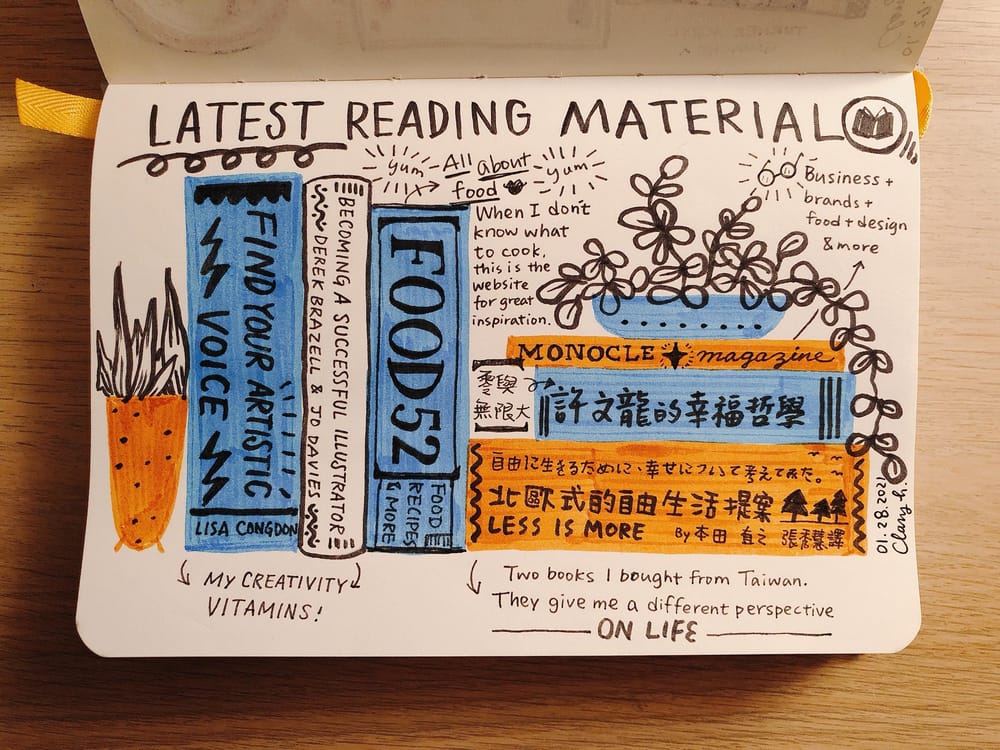 LATEST READING MATERIAL
yum
All about
food
yum
When I don't
know what
to cook,
this is the
website
for great
inspiration.
Business +
brands +
food + design
& more
FIND YOUR ARTISTIC
VOICE
LISA CONGDON
BECOMING A SUCCESSFUL ILLUSTRATOR
DEREK BRAZELL & JO DAVIES
FOOD52
FOOD
RECIPES
& MORE
MONOCLE magazine
零與
無限大
許文龍的幸福哲學
自由に生きるために、幸せについて考えてみた。
北歐式的自由生活提案
LESS IS MORE
By 本田 直之 張秀慧譯
10.28.2021
MY CREATIVITY
VITAMINS!
Two books I bought from Taiwan.
They give me a different perspective
ON LIFE